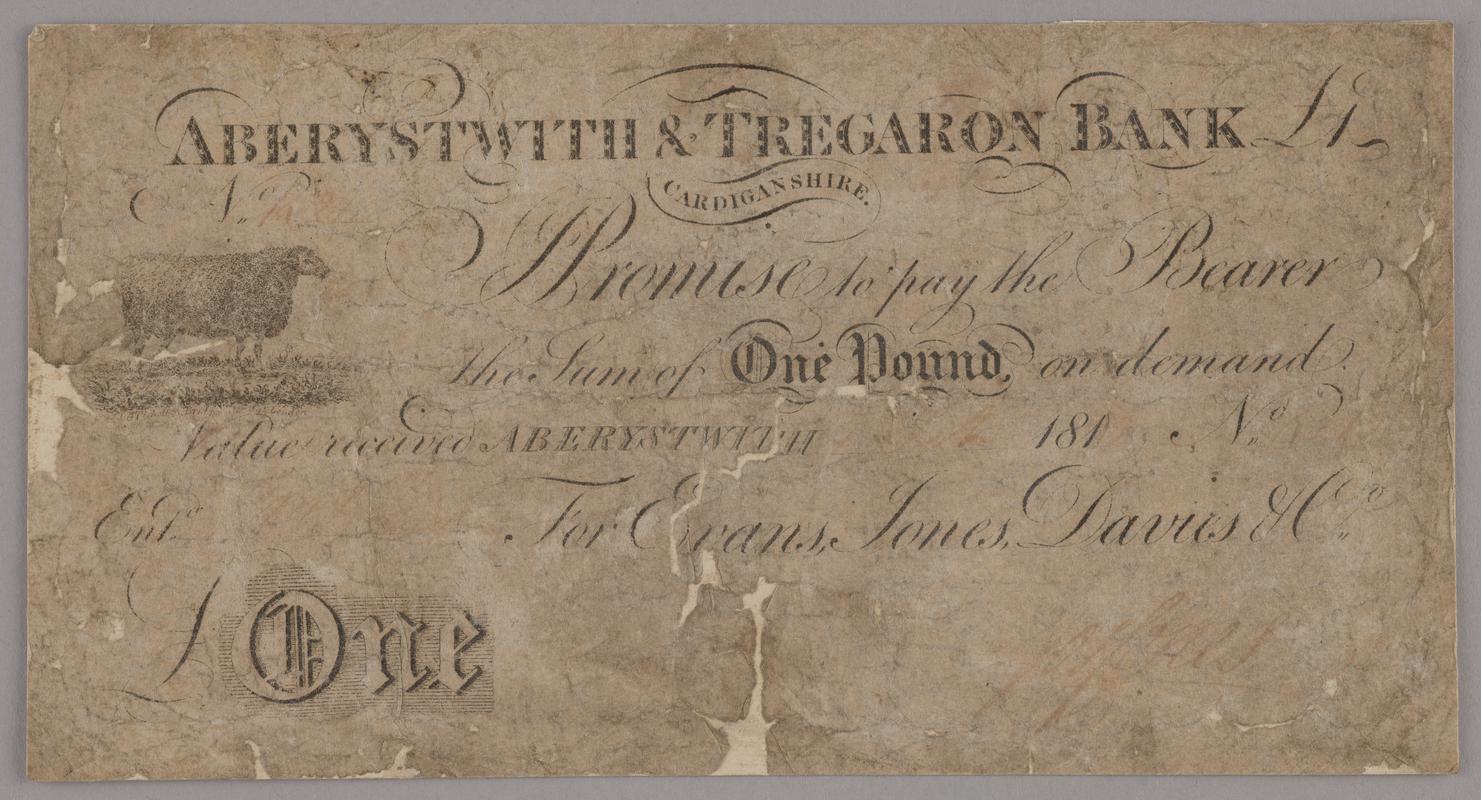 ABERYSTWITH & TREGARON BANK £1
CARDIGANSHIRE.
No
I Promise to pay the Bearer
the Sum of One Pound, on demand
Value received ABERYSTWITH 181 No
Entd
For Evans, Jones, Davies & Co
£ One